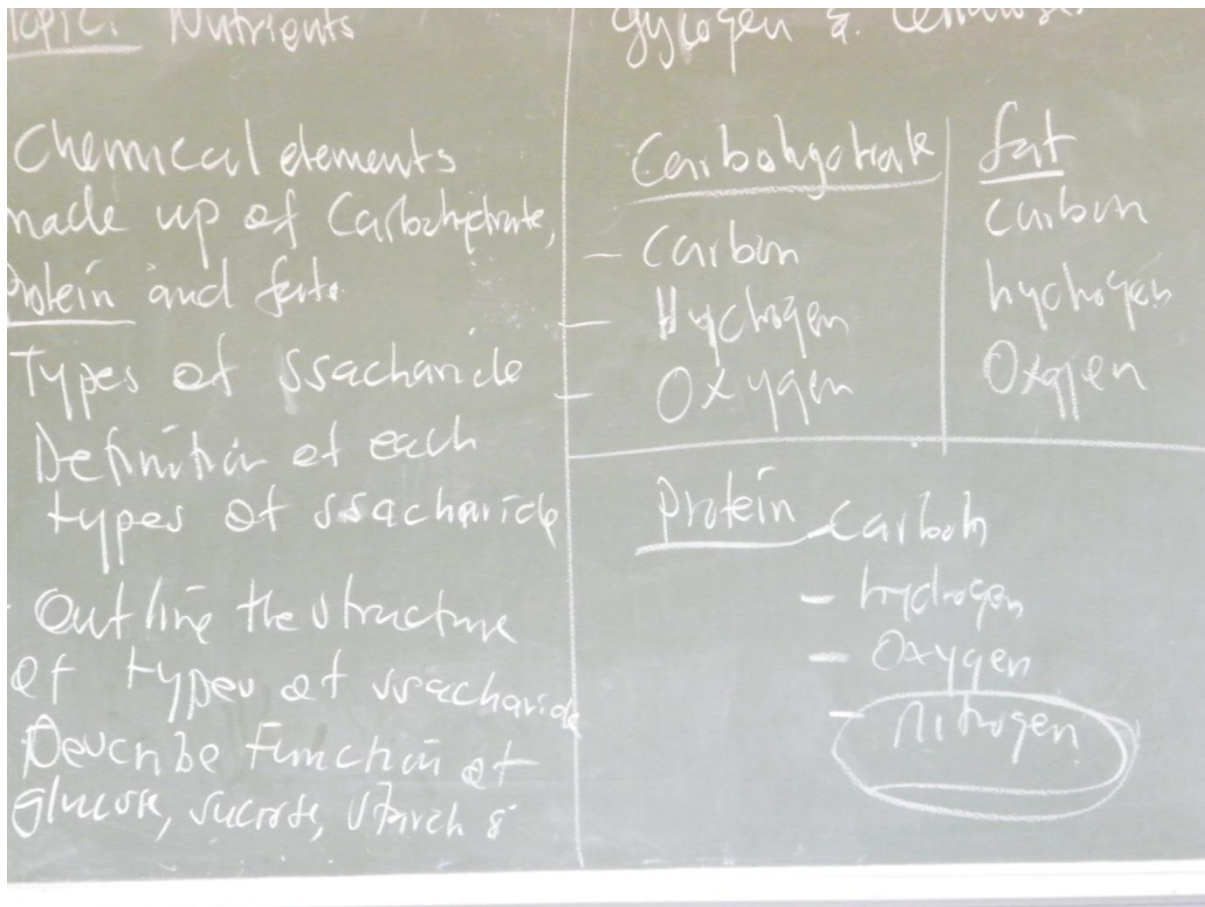 Topic: Nutrients
Chemical elements
made up of Carbohydrate,
Protein and fats
Types of ssacharide
Definition of each
types of ssacharide
- Outline the structure
of types of ssacharide
Describe Function of
glucose, sucrose, starch &
glycogen & Cellulose
Carbohydrate
- Carbon
- Hydrogen
- Oxygen
fat
Carbon
hydrogen
Oxygen
Protein - Carbon
- hydrogen
- Oxygen
- nitrogen